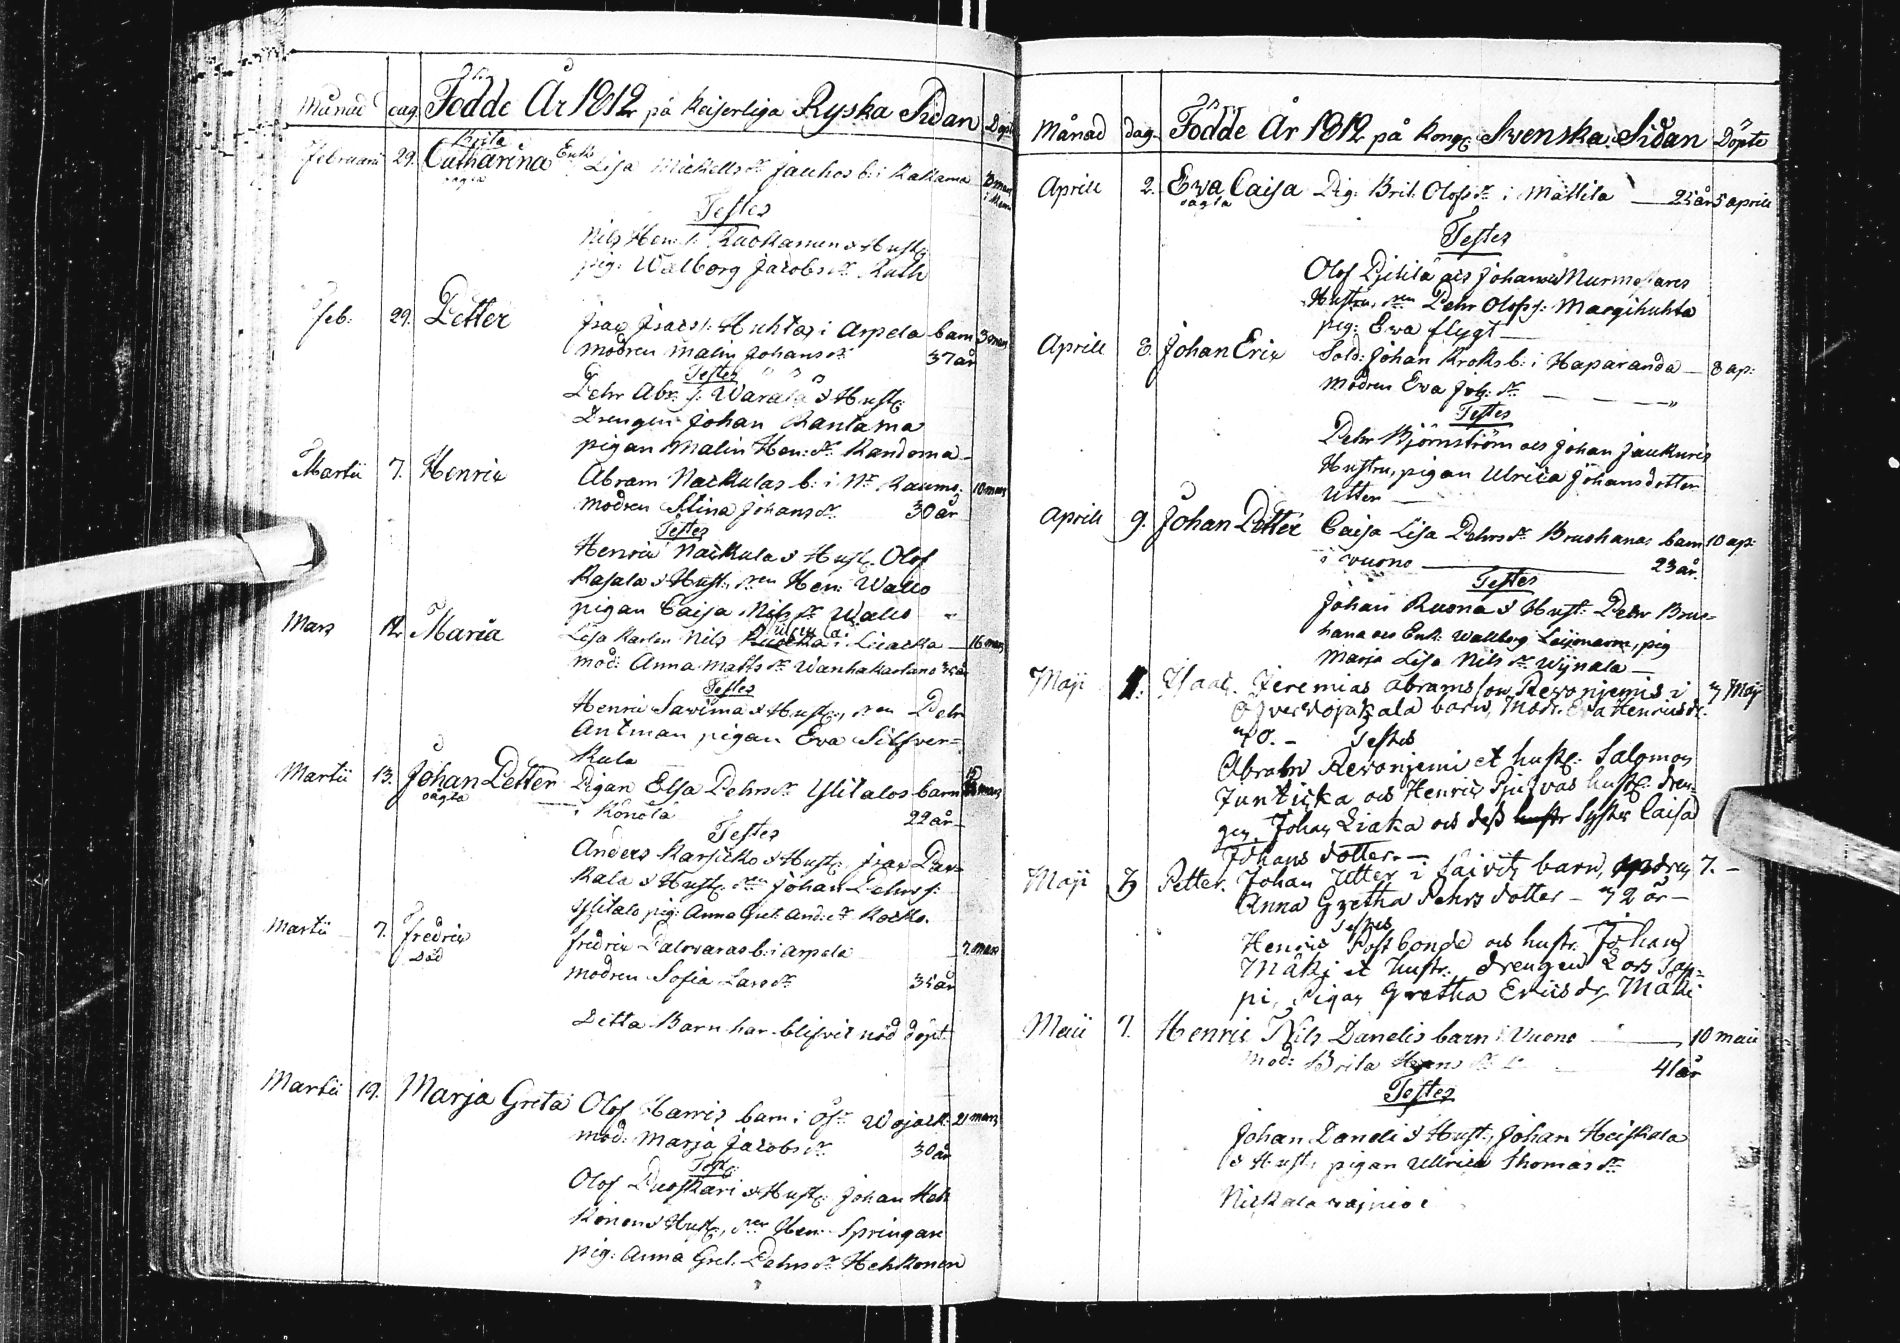 Månad dag. Födde År 1812 på Keiserliga Ryska Sidan Döpte
Februarii 29. Brita Catharina Enk: Lisa Mickells dr Jauhos b: i Kakama
oägta
Testes
Nils Hen: s: Ruokanen & Hustr.
pig: Walborg Jacobs dr Ruth
Feb: 29. Petter Isac Isacs s: Huhtas i Arpela barn 3 mars
modren Malin Johans dr 37 år
Testes
Pehr Abr. s: Warala & Hustr.
Drengen Johan Rantama
pigan Malin Hen: dr Randoma
Martii 7. Henric Abram Nackulas b: i Nr Raumo 10 mars
modren Stina Johans dr 30 år
Testes
Henric Nackula & Hustr. Olof
Kasala & Hustr. Hen: Wallo
pigan Caisa Nils dr Wallo
Mars 12 Maria Lega Karlen Nils i Liacka 16 mars
mod: Anna Matts dr Wanhakartano
Testes
Henric Sawima & Hustr. Pehr
Antman pigan Eva Silfver-
kula
Martii 13. Johan Petter Pigan Elsa Pehrs dr Ylitalos barn mars
oägta i Könölä 22 år
Testes
Anders Karsicko & Hustr. Isac Par-
kala & Hustr. Johan Pehrs s:
Ylitalo pig: Anna Gret. And: dr Kosko.
Martii 7. Fredric Fredric Palovaras b: i Arpela 7 mars
död modren Sofia Lars dr 35 år
Detta Barn har blifvit nöd döpt
Martii 19. Marja Greta Olof Harris barn i Öfr Wojack: 21 mars
mod: Marja Jacobs dr 30 år
Test:
Olof Puoskari & Hustr. Johan Heh
konen & Hustr. Hen: Springare
pig: Anna Gret. Pehrs dr Hehkonen
Månad dag. Födde År 1812 på Kongl. Svenska Sidan Döpte
Aprill 2. Eva Caisa Pig: Brit. Olofs dr i Mattila 25 år 5 aprill
oägta
Testes
Olof Pitilä och Johannes Nurmosares
Hustru, Pehr Olofs s: Marjihuhta
pig: Eva flygt
Aprill 8. Johan Eric Sold: Johan Kroks b: i Haparanda 8 ap:
modren Eva Joh: dr
Testes
Pehr Björnström och Johan Jaukuris
Hustru, pigan Ulrica Johansdotter
Utter
Aprill 9. Johan Petter Caisa Lisa Pehrs dr Brushanes barn 10 ap:
i Vuono 23 år.
Testes
Johan Ruona & Hust: Pehr Brus-
hana och Enk: Wallborg Leijonarm, pig
Marja Lisa Nils dr Wijnala
Maji 1. Isaac. Jeremias Abramsson Revonjemis i 3 Maji
Öfvervojakala barn, Modr. Eva Henrics dr.
40. Testes
Abrahm Revonjemi et hustr. Salomon
Junticka och Henric Pjiswas hustr. dren-
gen Johan Liaka och dess hustr Syster Caisa
Johans dotter.
Maji 3 Petter. Johan Utter i Säivis barn, modren 7.
Anna Gretha Pehrs dotter 32 år
Testes
Henric Postbonde och hustr. Johan
Mäki et hustr. drengen Lars Tap-
pi, Pigan Gretha Erics dr Mäki
Maii 7. Henric Nils Danelis barn i Vuono 10 maii
mod: Brita Hans dr 41 år
Testes
Johan Daneli & Hust: Johan Heiskala
& Hust: pigan Ullrica Thomas dr
Nickala